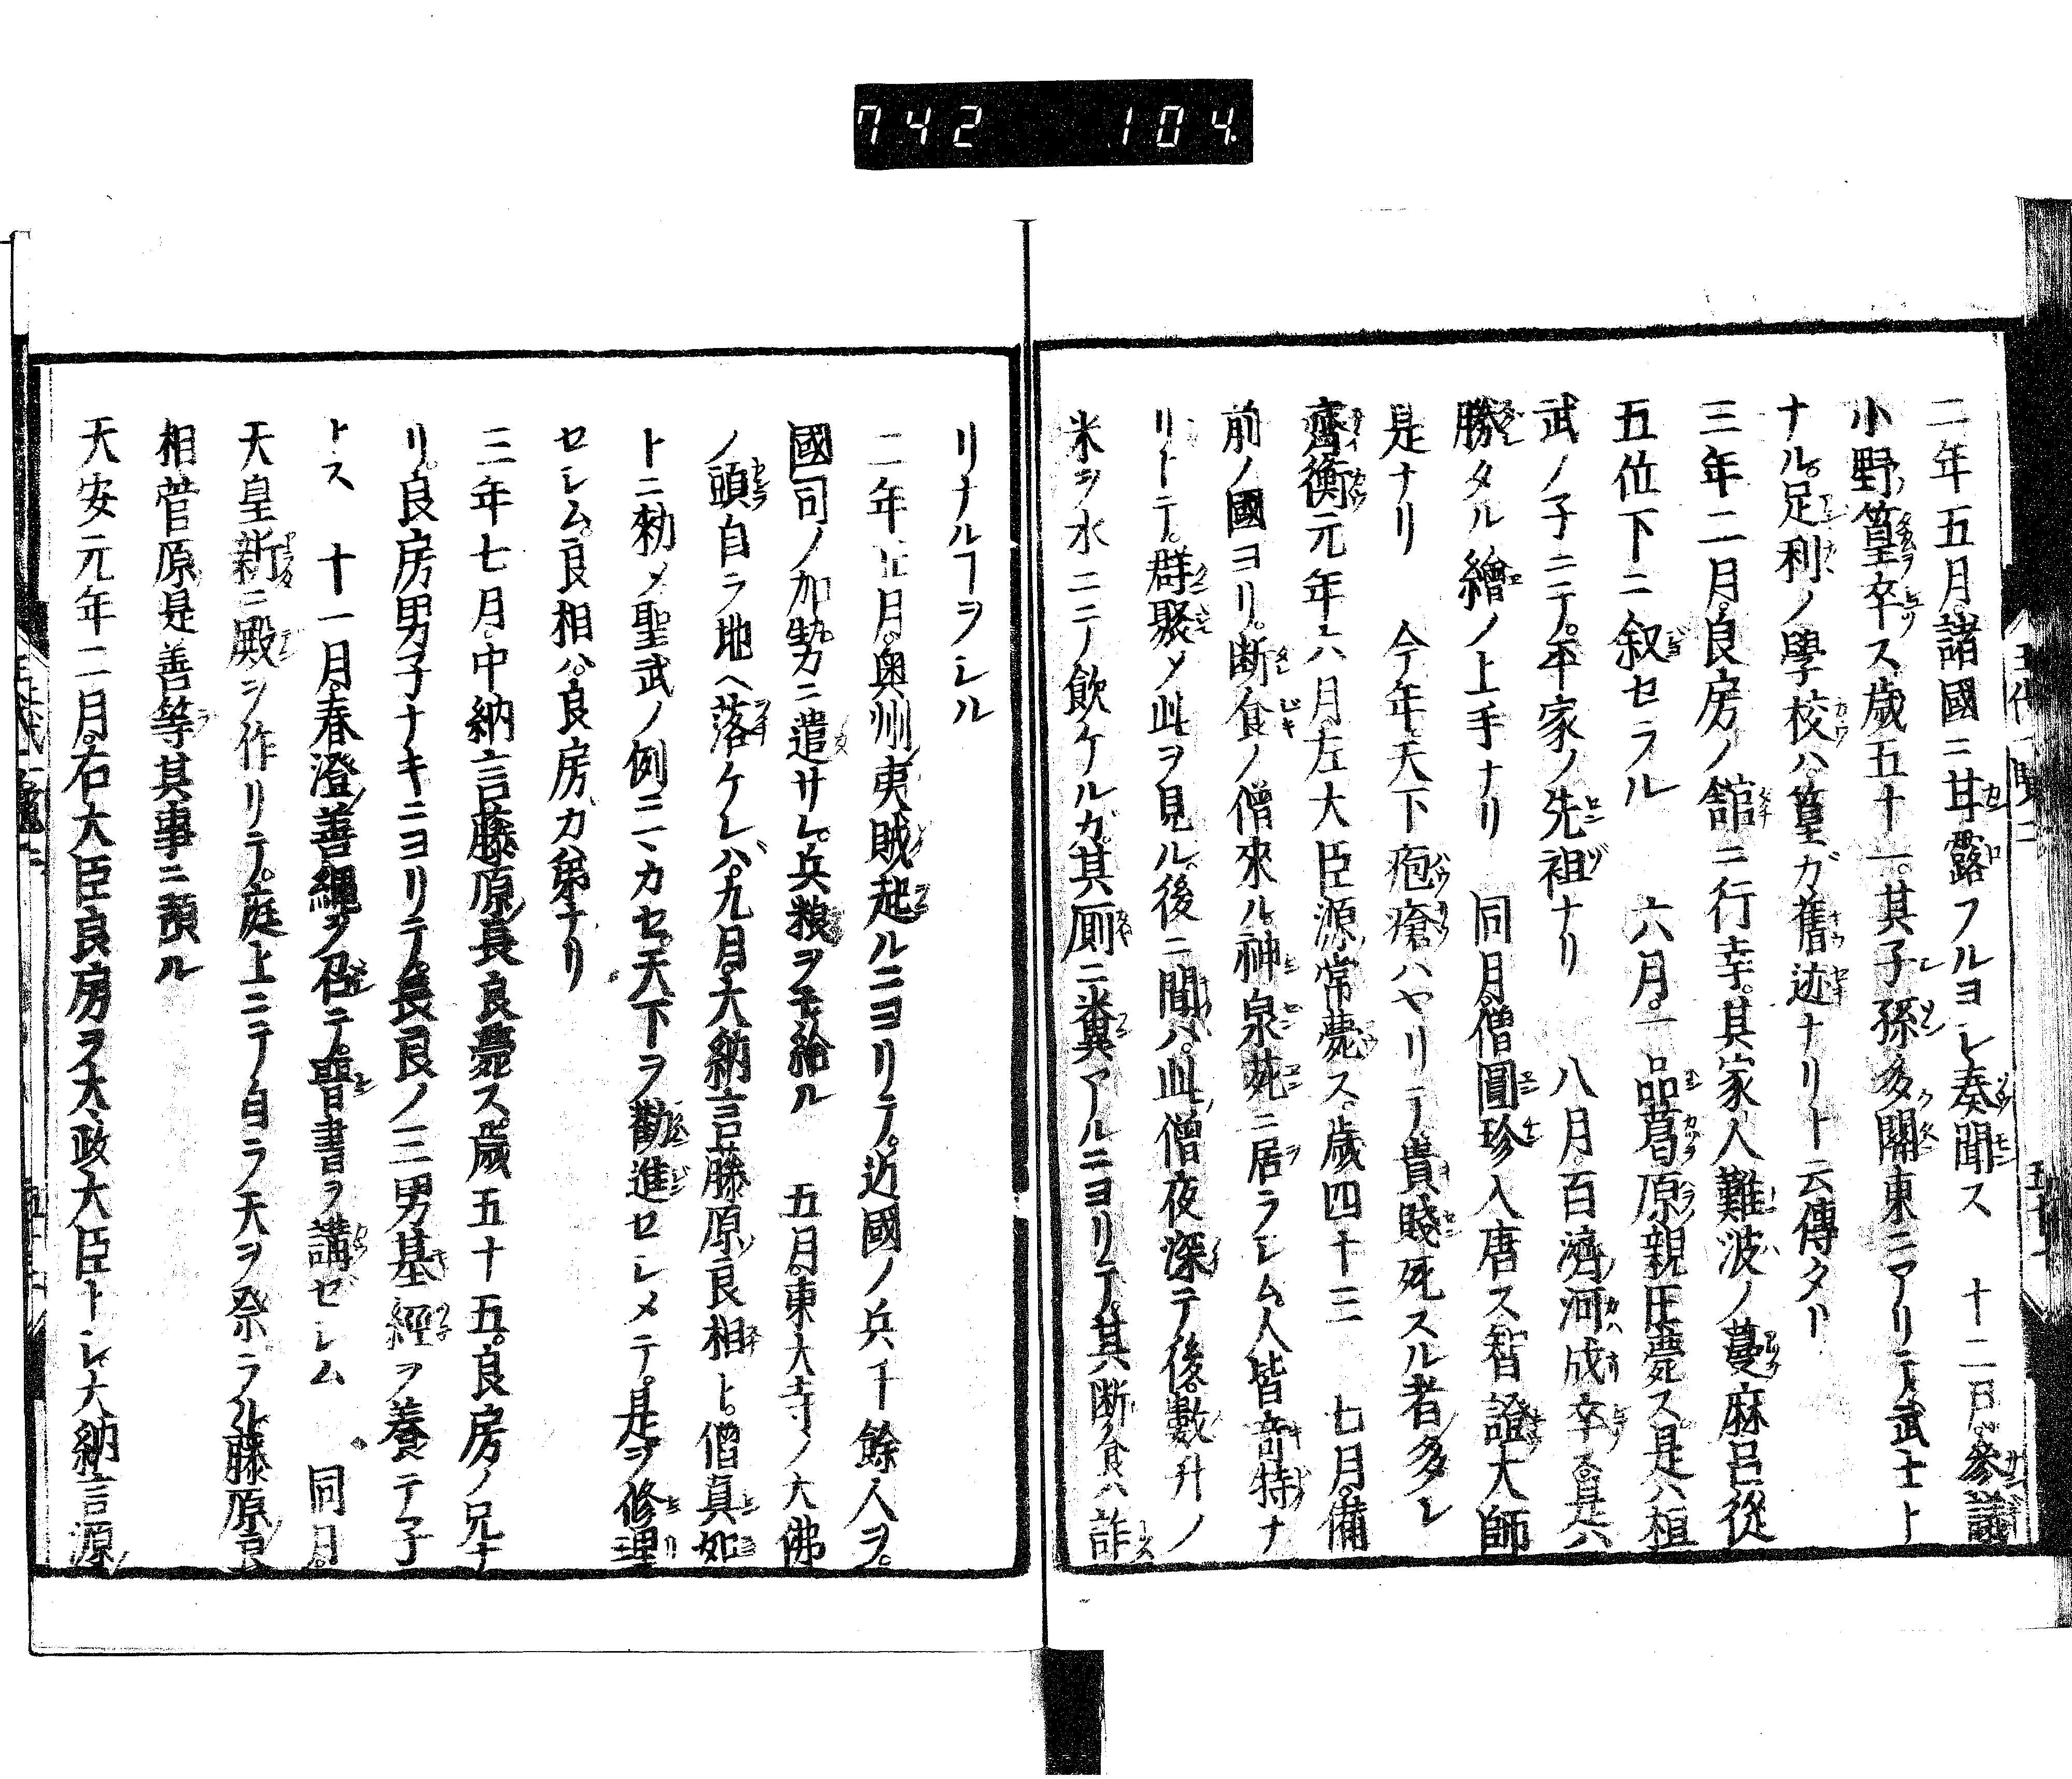 742 104
二年五月。諸國ニ甘露フルヨシ奏聞ス 十二月。參議
小野篁卒ス歳五十一。其子孫多ク關東ニアリテ武士ト
ナル。足利ノ學校ハ。篁ガ舊迹ナリト云傳タリ
三年二月。良房ノ舘ニ行幸。其家人難波ノ蔓麻呂從
五位下ニ叙セラル 六月。一品葛原親王薨ス。是ハ桓
武ノ子ニテ。平家ノ先祖ナリ 八月。百濟河成卒ス。是ハ
勝タル繪ノ上手ナリ 同月。僧圓珍入唐ス智證大師
是ナリ 今年天下疱瘡ハヤリテ貴賤死スル者多シ
齊衡元年六月。左大臣源常薨ス。歳四十三 七月。備
前ノ國ヨリ。断食ノ僧來ル。神泉苑ニ居ラシム。人皆奇特ナ
リトテ。群聚メ此ヲ見ル。後ニ聞ハ。此僧夜深テ後。數升ノ
米ヲ水ニテ飲ケルガ。其厠ニ糞アルニヨリテ。其断食ハ詐
リナルヿヲシル
二年正月。奥州夷賊起ルニヨリテ。近國ノ兵千餘人ヲ。
國司ノ加勢ニ遣サレ。兵粮ヲモ給ル 五月。東大寺ノ大佛
ノ頭自ラ地ヘ落ケレバ。九月。大納言藤原良相ト。僧真如
トニ勅メ聖武ノ例ニマカセ。天下ヲ勸進セシメテ。是ヲ修理
セシム。良相ハ。良房ガ弟ナリ
三年七月。中納言藤原長良薨ス。歳五十五。良房ノ兄ナ
リ。良房男子ナキニヨリテ。長良ノ三男基經ヲ養テ子
トス 十一月。春澄善繩ヲ召テ。晋書ヲ講ゼシム 同月。
天皇新ニ殿ヲ作リテ。庭上ニテ自ラ天ヲ祭ラル。藤原良
相菅原是善等其事ニ預ル
天安元年二月。右大臣良房ヲ大政大臣トシ。大納言源